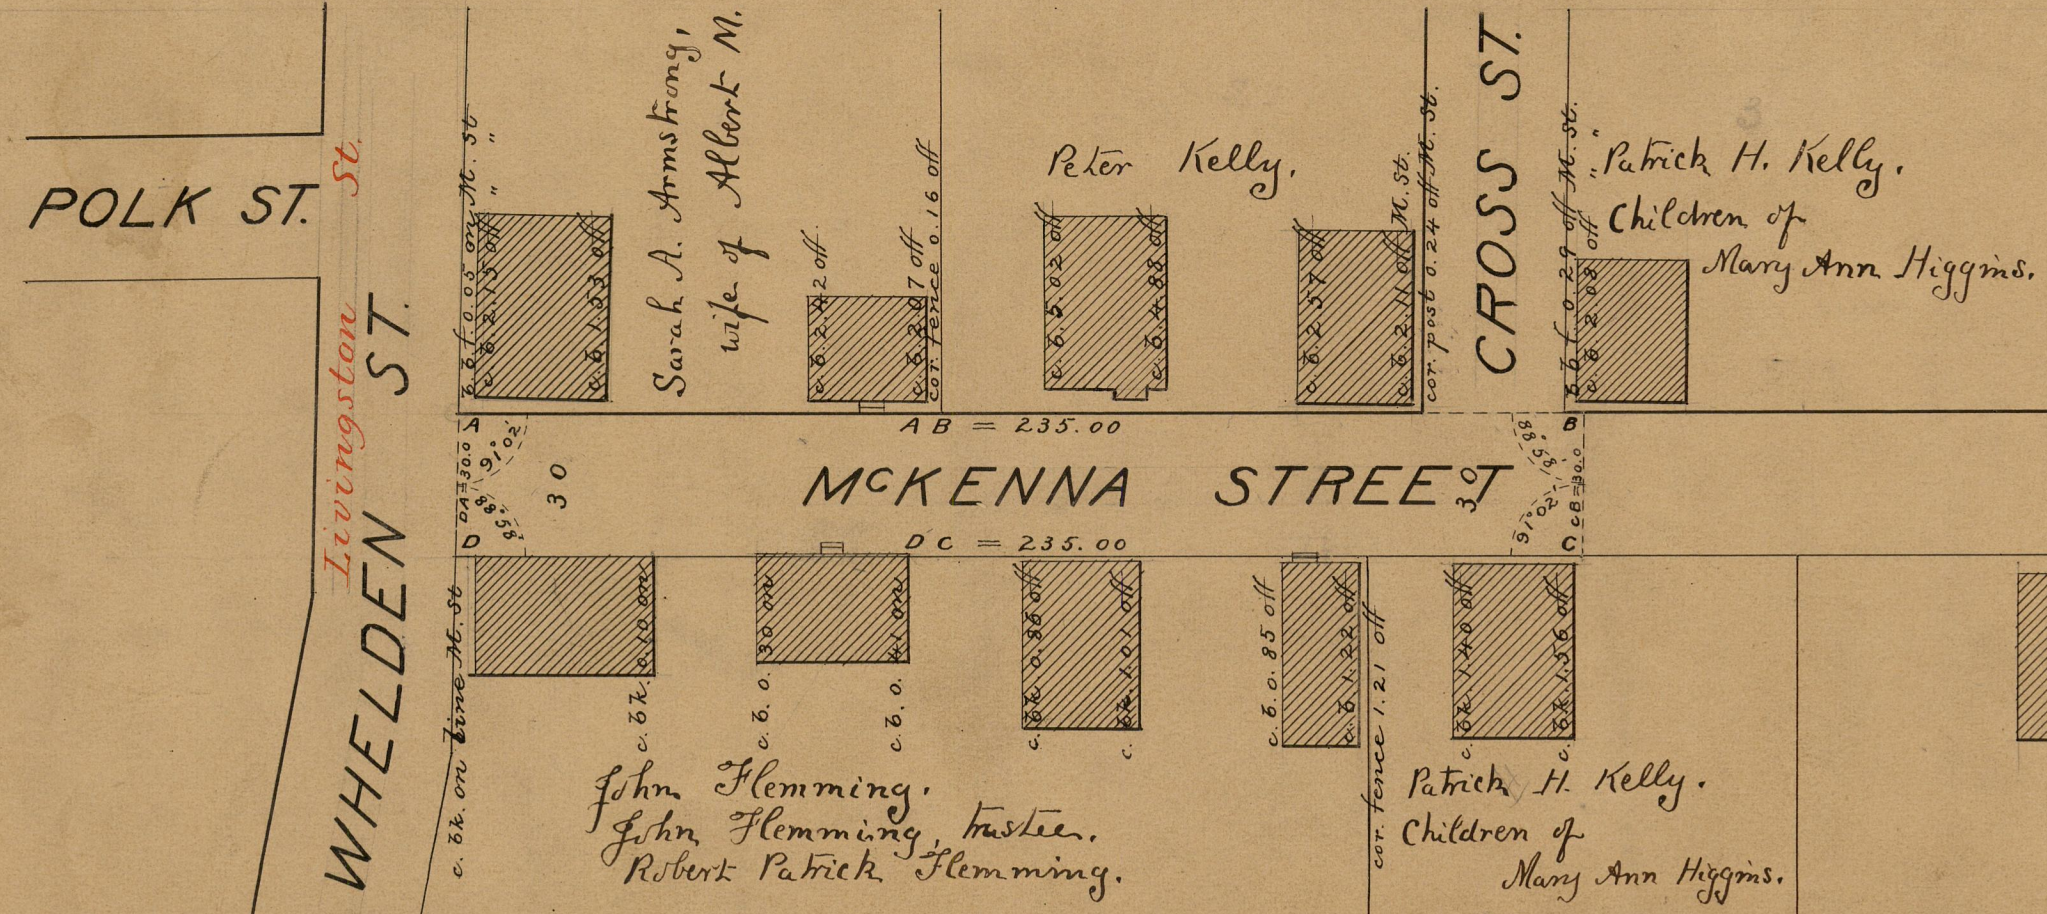 POLK ST.
Livingston St.
WHELDEN ST.
b.b.f. 0.05 on M. St.
c. b. 2.15 off " "
c. b. 1.53 off
Sarah A. Armstrong,
wife of Albert M.
c. b. 2.42 off.
c. b. 2.07 off
cor. fence 0.16 off
Peter Kelly.
c. b. 5.02 off
c. b. 4.88 off
c. b. 2.57 off
c. b. 2.11 off M. St.
cor. post 0.24 off M. St.
CROSS ST.
b b f. 0.29 off M. St.
c. b. 2.08 off "
Patrick H. Kelly.
Children of
Mary Ann Higgins.
A
AB = 235.00
B
DA=30.0
91° 02'
88° 58'
30
McKENNA STREET
30
88° 58'
91° 02'
CB=30.0
D
DC = 235.00
C
c. bk. on line M. St
c. bk. 0.10 on
c. b. 0.30 on
c. b. 0.41 on
c. bk. 0.86 off
c. bk. 1.01 off
c. b. 0.85 off
c. b. 1.22 off
cor. fence 1.21 off
c. bk. 1.40 off
c. bk. 1.56 off
John Flemming.
John Flemming, trustee.
Robert Patrick Flemming.
Patrick H. Kelly.
Children of
Mary Ann Higgins.